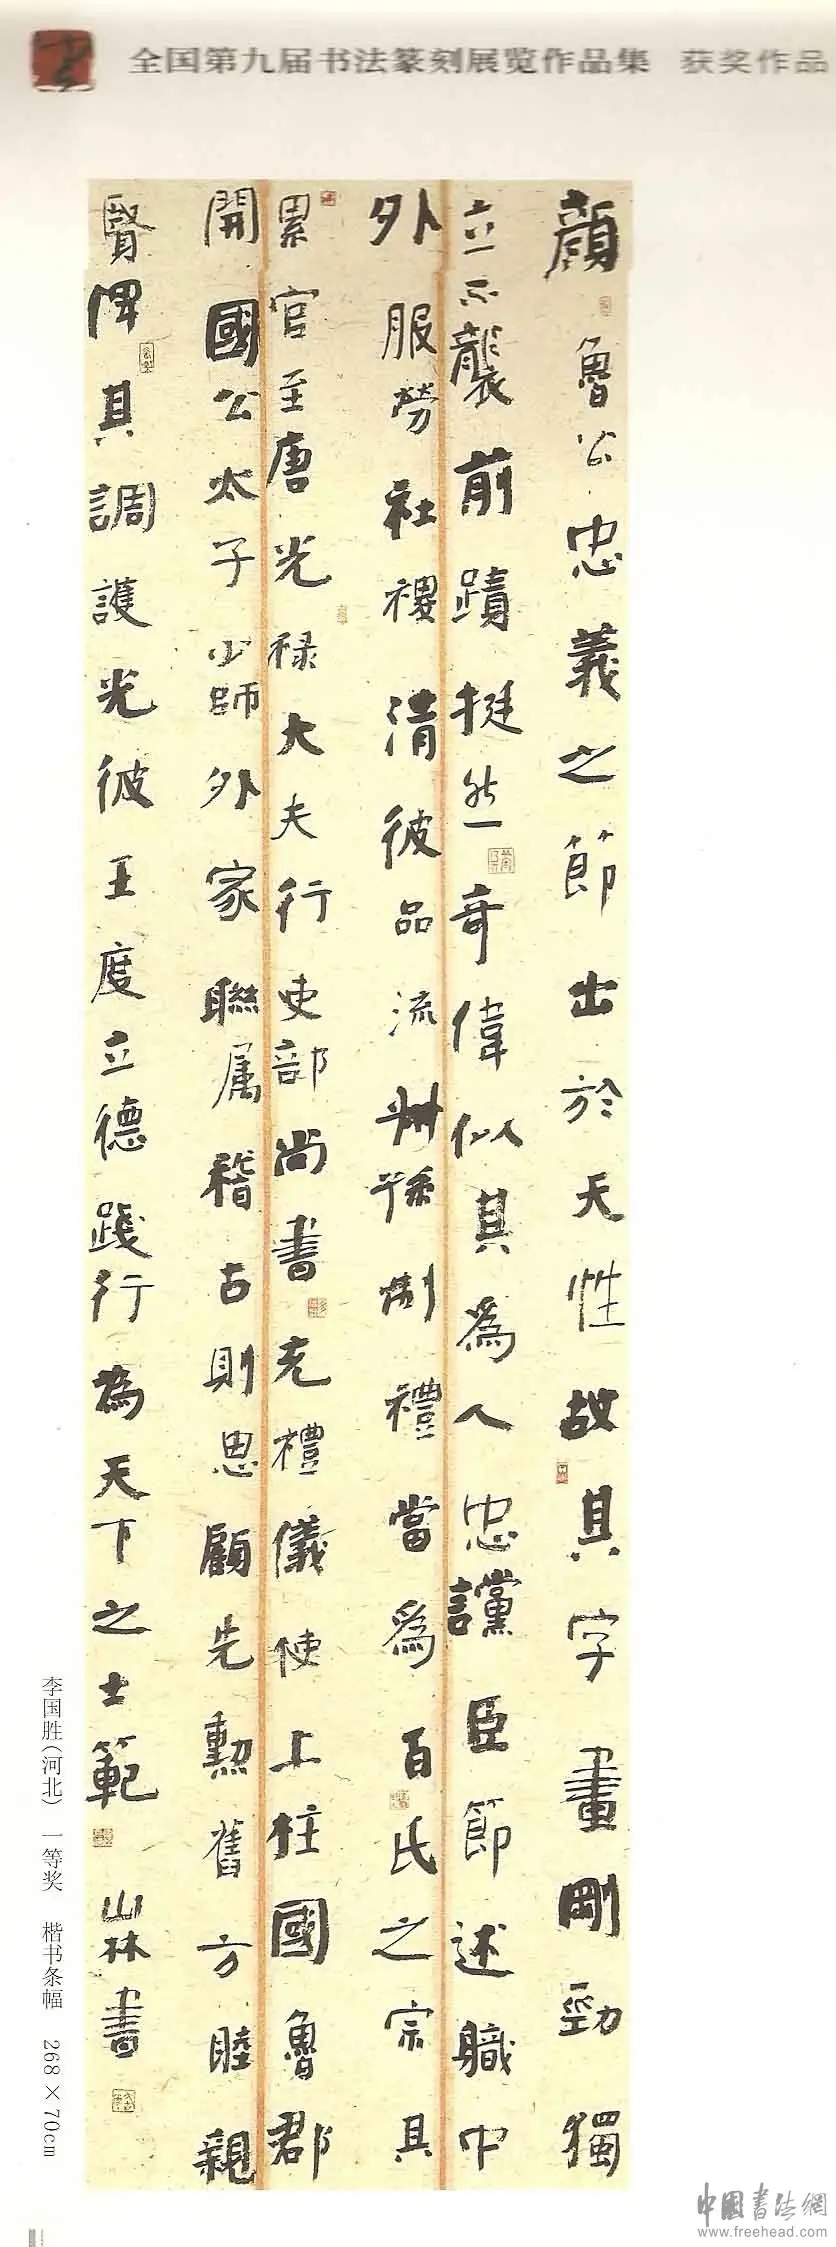 全国第九届书法篆刻展览作品集 获奖作品
顏魯公忠義之節出於天性故其字畫剛勁獨
立不襲前蹟挺然奇偉似其為人忠讜臣節述職中
外服勞社稷清彼品流
制禮當為百氏之宗其
累官至唐光禄大夫行吏部尚書充禮儀使上柱國魯郡
開國公太子少師外家聯属稽古則思顧先勲舊方睦親
賢俾其調護光彼王度立德踐行為天下之士範 山林書
李国胜(河北) 一等奖 楷书条幅 268×70cm
中国書法網
www.freehead.com